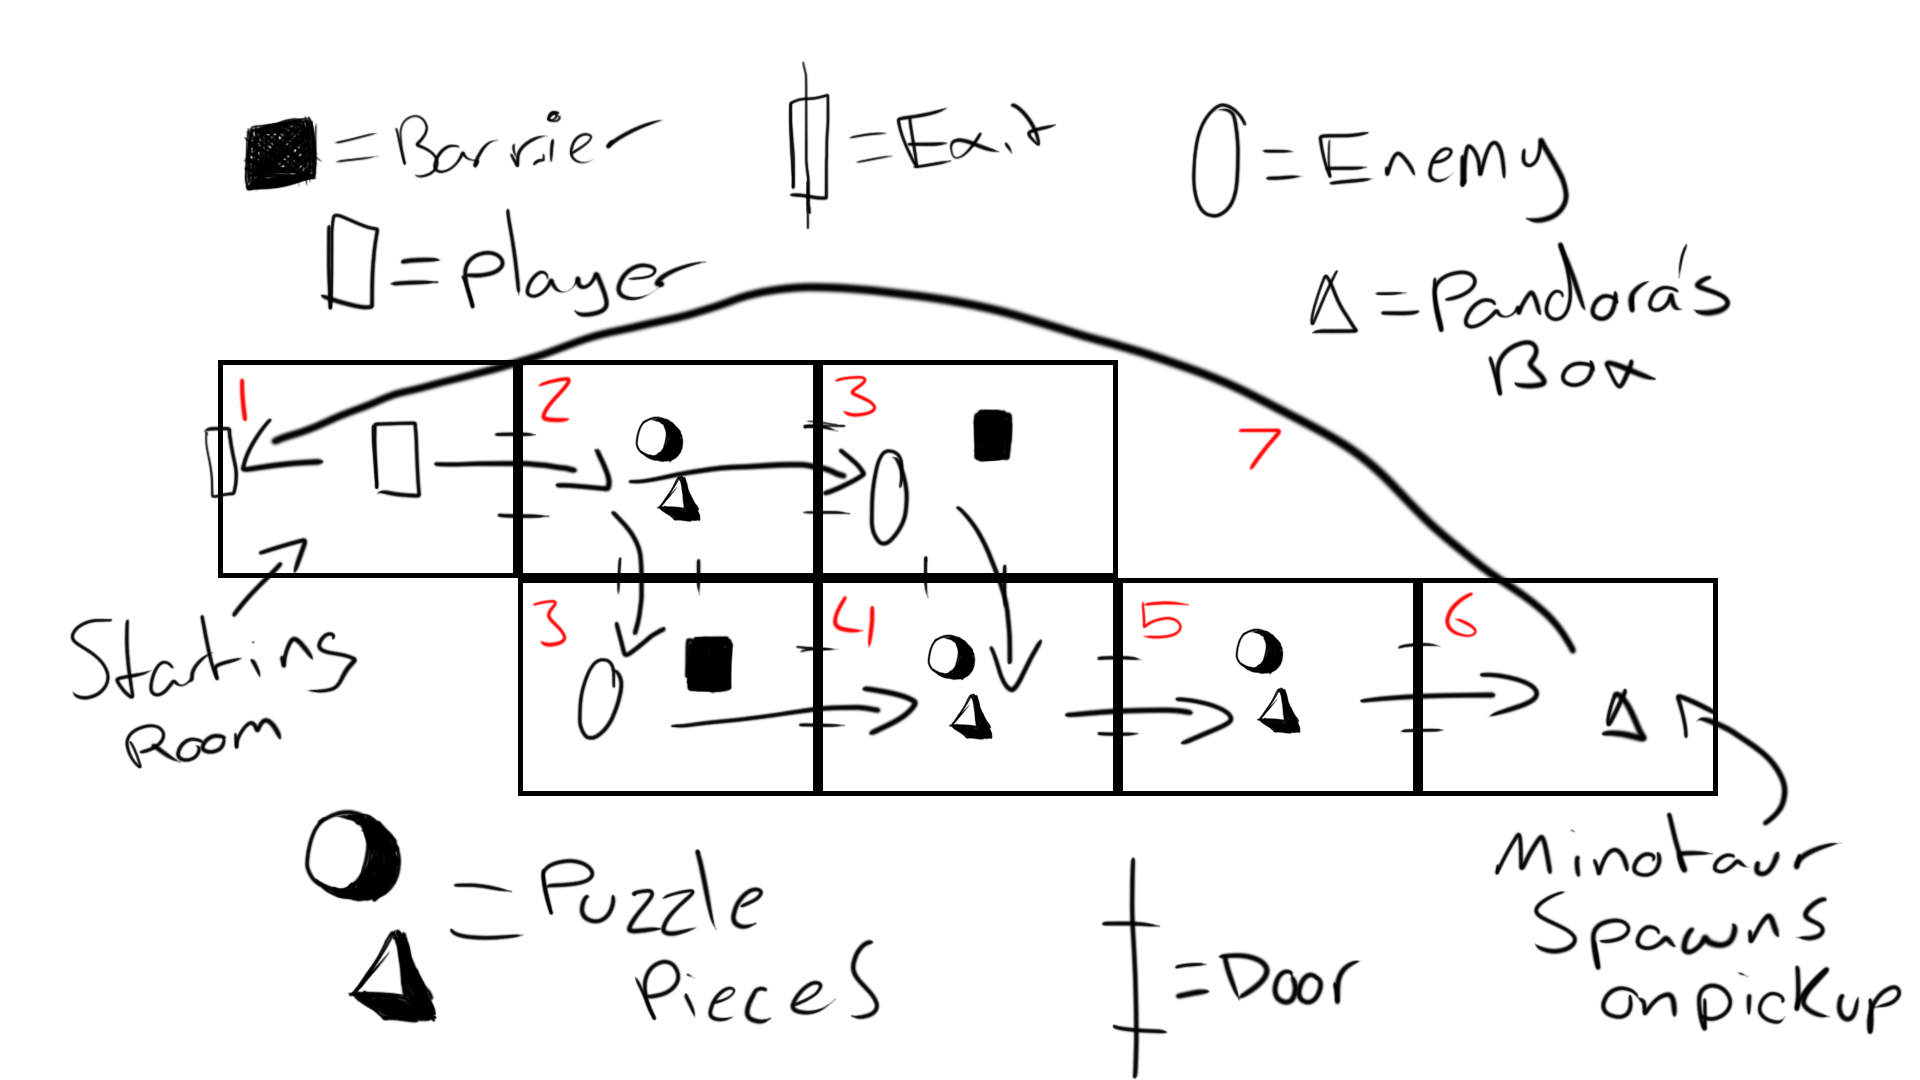 = Barrier
= Exit
= Enemy
= Player
= Pandora's
Box
1
2
3
7
3
4
5
6
Starting
Room
= Puzzle
Pieces
= Door
Minotaur
Spawns
on pickup